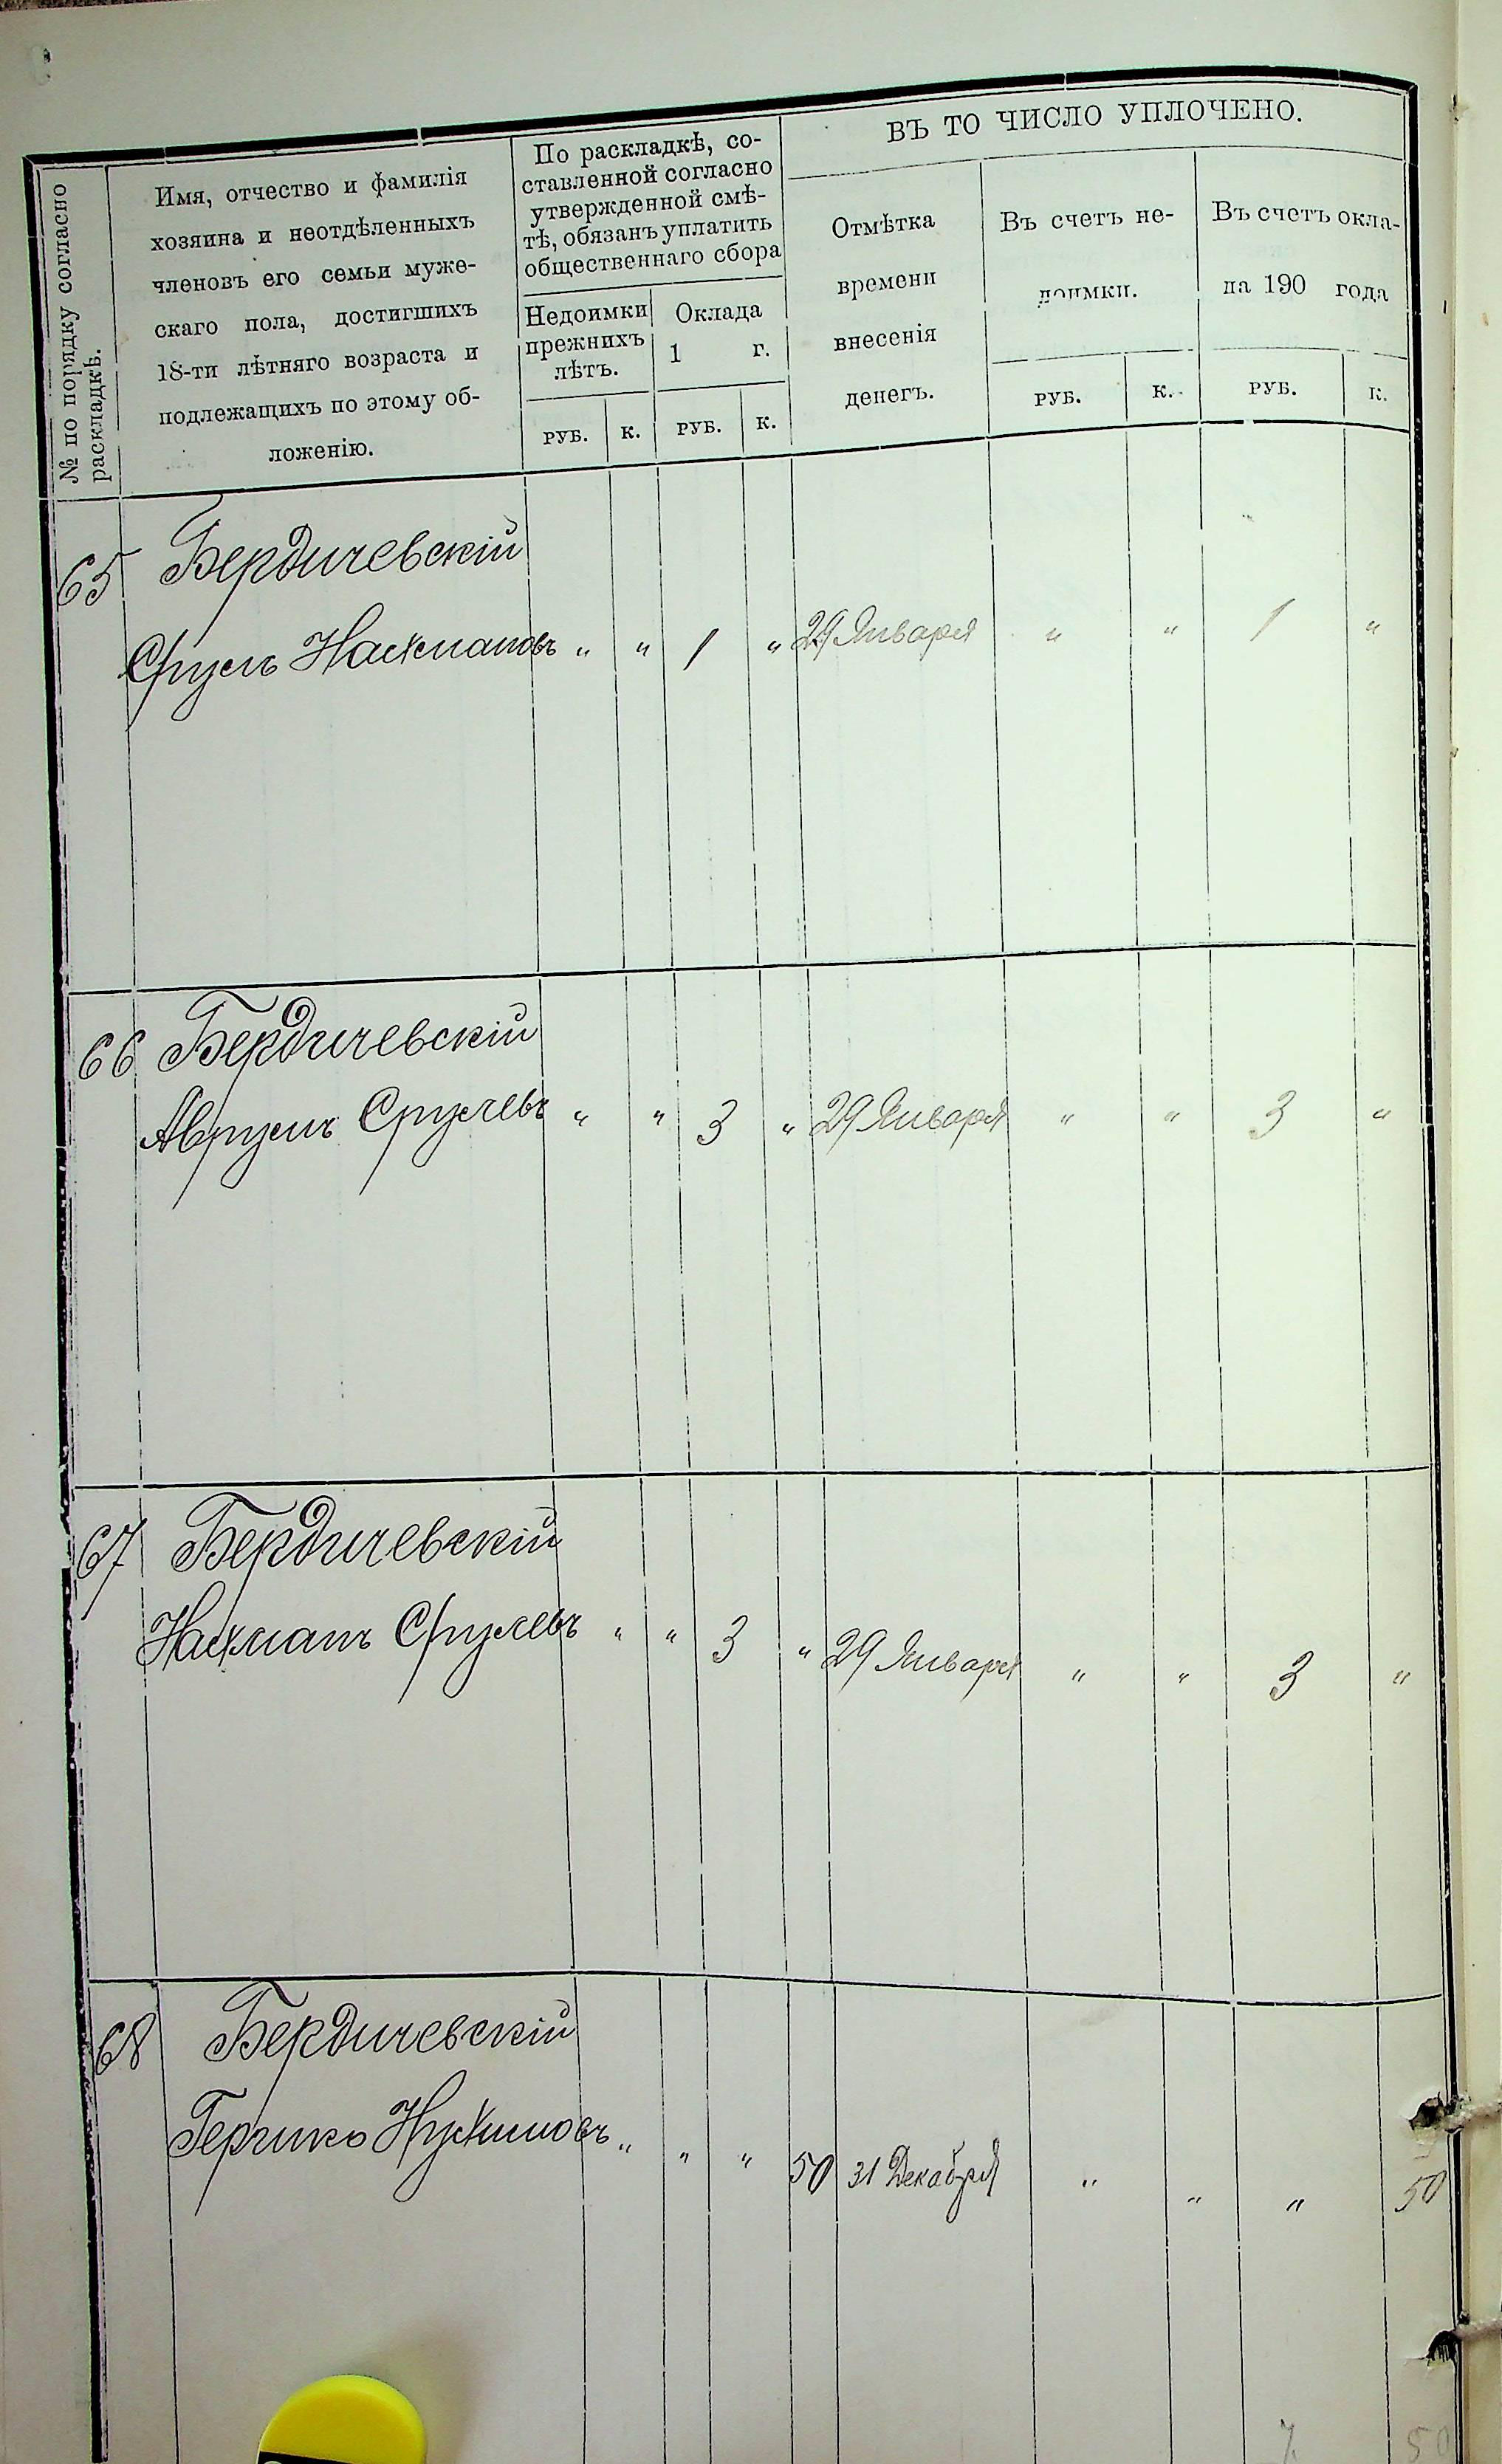 ВЪ ТО ЧИСЛО УПЛОЧЕНО.
№ по порядку согласно
раскладкѣ.
Имя, отчество и фамилія
хозяина и неотдѣленныхъ
членовъ его семьи муже-
скаго пола, достигшихъ
18-ти лѣтняго возраста и
подлежащихъ по этому об-
ложенію.
По раскладкѣ, со-
ставленной согласно
утвержденной смѣ-
тѣ, обязанъ уплатить
общественнаго сбора
Недоимки
прежнихъ
лѣтъ.
Оклада
1 г.
РУБ. К. РУБ. К.
Отмѣтка
времени
внесенія
денегъ.
Въ счетъ не-
доимки.
РУБ. К.
Въ счетъ окла-
да 190 года
РУБ. К.
65 Бердичевскій
Сруль Нахмановъ " " 1 " 29 Января " " 1 "
66 Бердичевскій
Аврумъ Срулевъ " " 3 " 29 Января " " 3 "
67 Бердичевскій
Нахманъ Срулевъ " " 3 " 29 Января " " 3 "
68 Бердичевскій
Гершко Нухимовъ " " " 50 31 Декабря " " " 50
7 50